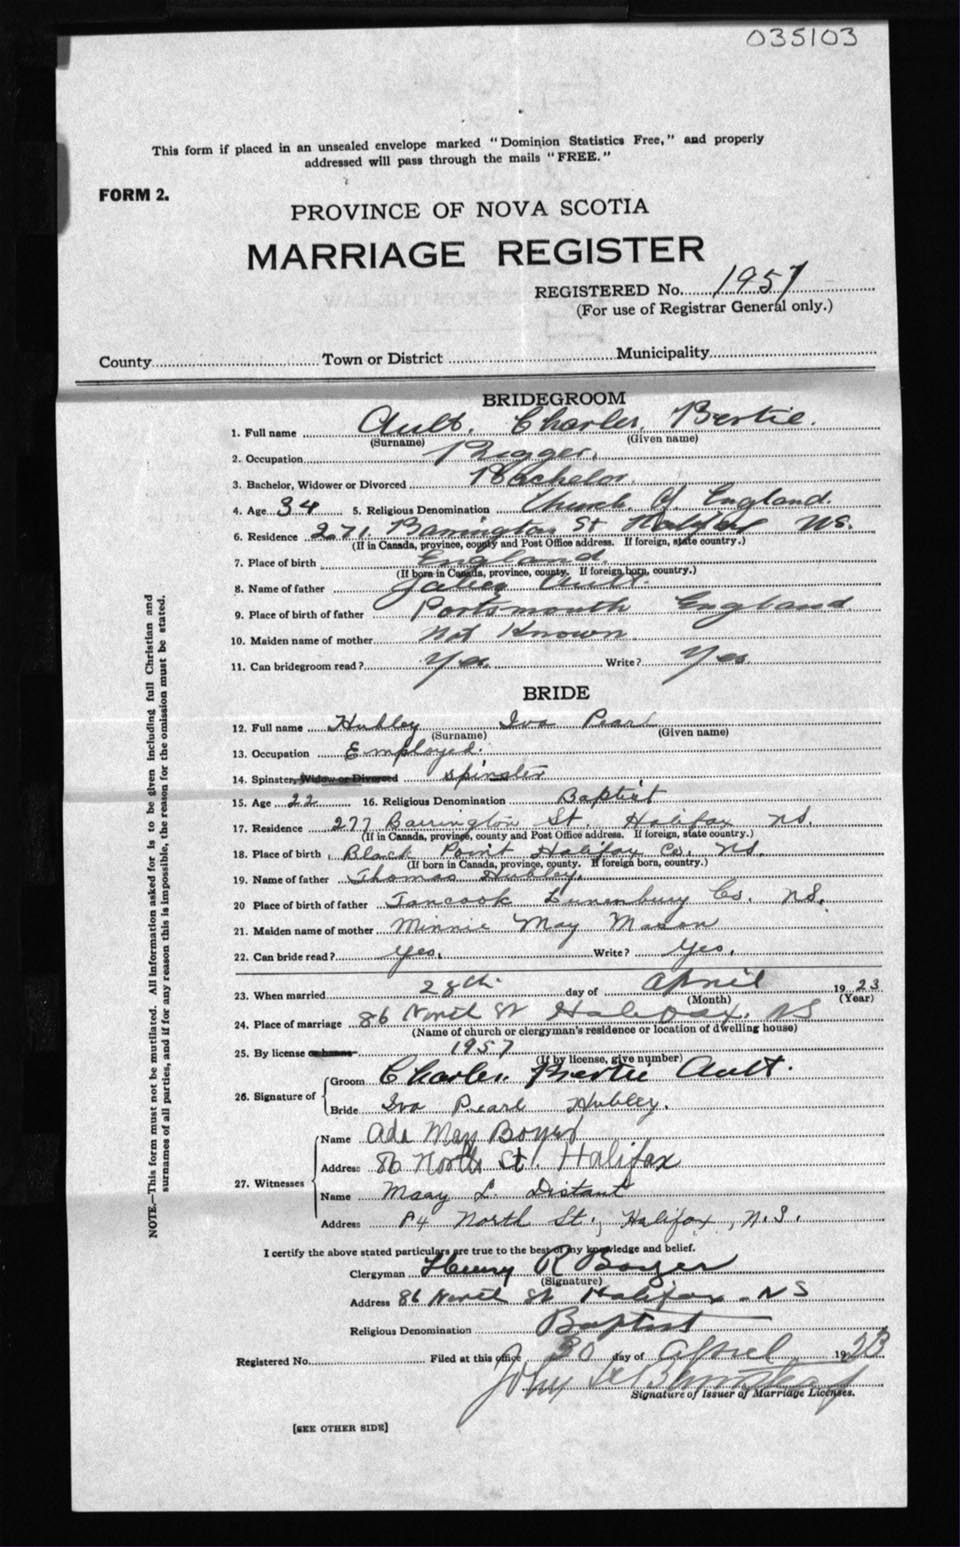 035103
This form if placed in an unsealed envelope marked "Dominion Statistics Free," and properly
addressed will pass through the mails "FREE."
FORM 2.
PROVINCE OF NOVA SCOTIA
MARRIAGE REGISTER
REGISTERED No. 1957
(For use of Registrar General only.)
County Town or District Municipality
BRIDEGROOM
1. Full name Ault, Charles, Bertie.
(Surname) (Given name)
2. Occupation Rigger.
3. Bachelor, Widower or Divorced Bachelor.
4. Age 34 5. Religious Denomination Church of England.
6. Residence 271 Barrington St Halifax NS.
(If in Canada, province, county and Post Office address. If foreign, state country.)
7. Place of birth England.
(If born in Canada, province, county. If foreign born, country.)
8. Name of father Ault.
9. Place of birth of father Portsmouth England
10. Maiden name of mother Not Known
11. Can bridegroom read? Yes Write? Yes
BRIDE
12. Full name Hubley Iva Pearl
(Surname) (Given name)
13. Occupation Employed.
14. Spinster, Widow or Divorced spinster
15. Age 22 16. Religious Denomination Baptist
17. Residence 277 Barrington St. Halifax NS.
(If in Canada, province, county and Post Office address. If foreign, state country.)
18. Place of birth Black Point Halifax Co. NS.
(If born in Canada, province, county. If foreign born, country.)
19. Name of father Thomas Hubley.
20 Place of birth of father Tancook Lunenburg Co. NS.
21. Maiden name of mother Minnie May Mason
22. Can bride read? Yes. Write? Yes.
23. When married 28th day of April 1923
(Month) (Year)
24. Place of marriage 86 North St Halifax. NS
(Name of church or clergyman's residence or location of dwelling house)
25. By license or banns 1957
(If by license, give number)
26. Signature of
Groom Charles Bertie Ault.
Bride Iva Pearl Hubley.
27. Witnesses
Name Ada May Boyer
Address 86 North St. Halifax
Name Mary L. Distant
Address 84 North St., Halifax, N.S.
I certify the above stated particulars are true to the best of my knowledge and belief.
Clergyman Henry R Boyer
(Signature)
Address 86 North St Halifax - NS
Religious Denomination Baptist
Registered No. Filed at this office 30 day of April 1923
John
Signature of Issuer of Marriage Licenses.
[SEE OTHER SIDE]
NOTE.—This form must not be mutilated. All information asked for is to be given including full Christian and
surnames of all parties, and if for any reason this is impossible, the reason for the omission must be stated.